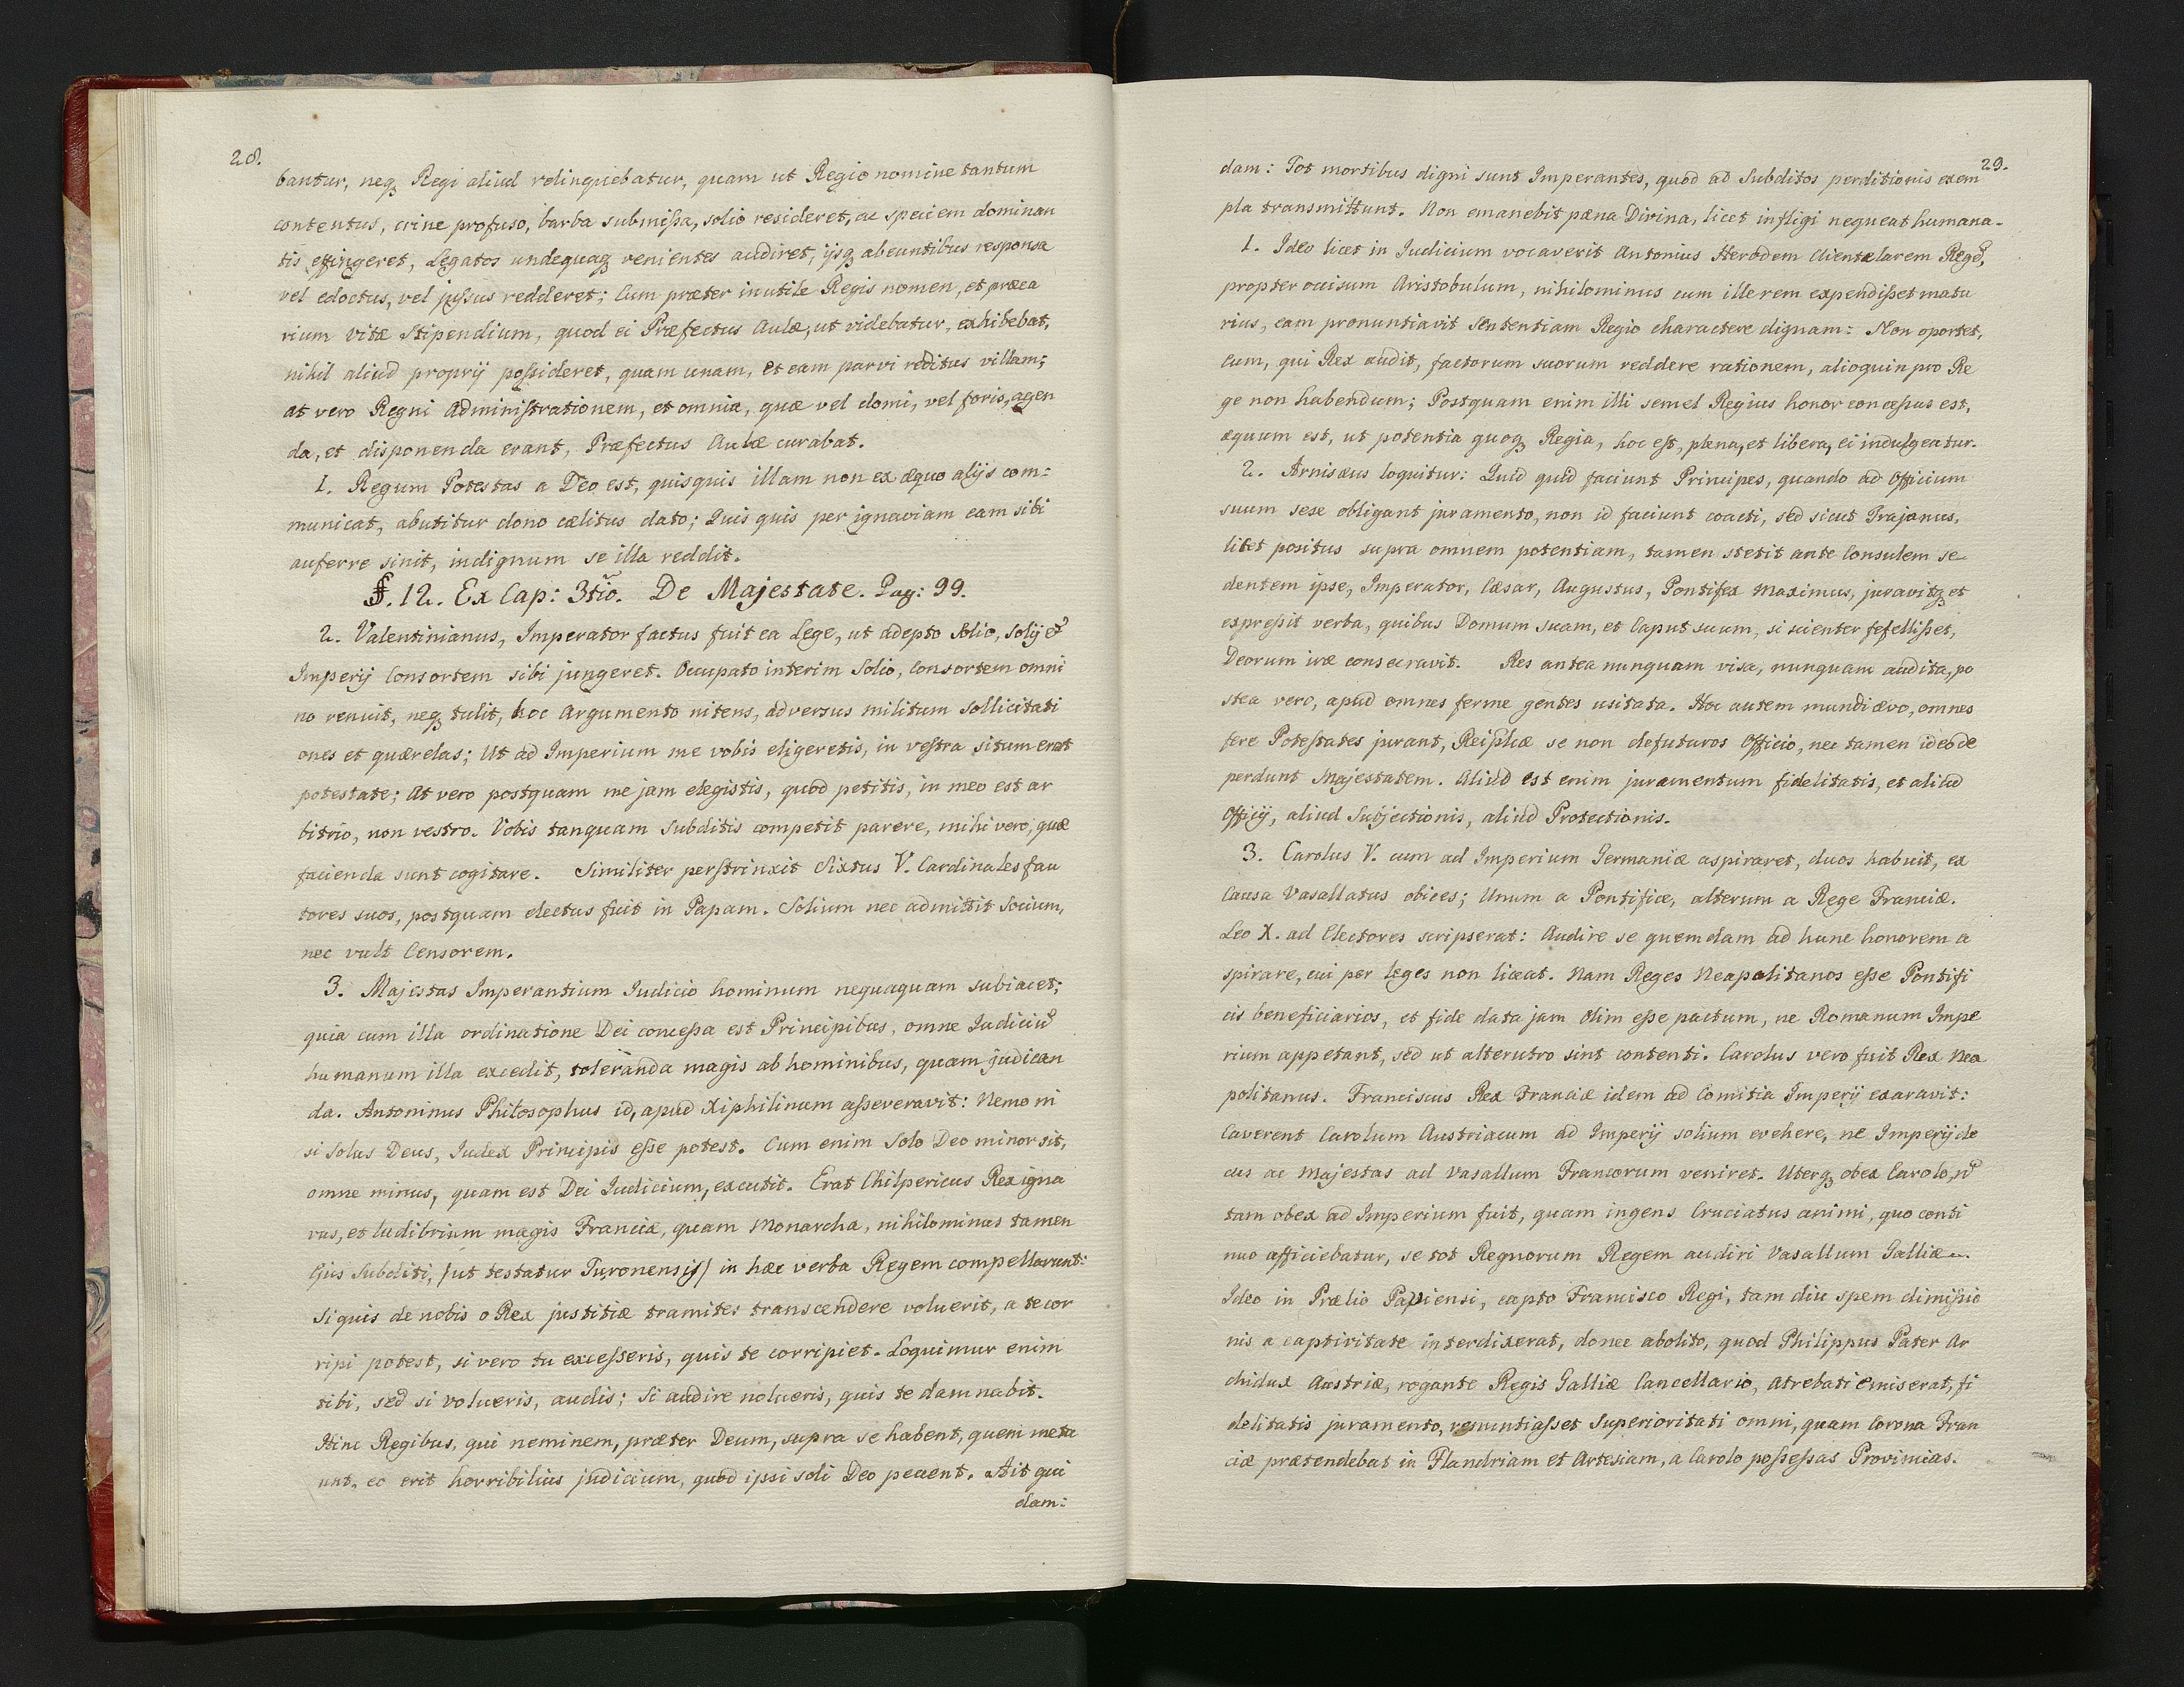 28.
bantur, neq₃ Regi aliud relinquebatur, quam ut Regio nomine tantum
contentus, crine profuso, barba submissa, solio resideret, ac speciem dominan
tis effingeret, Legatos undequaq₃ venientes audiret, ijsq₃ abeuntibus responsa
vel edoctus, vel jussus redderet; Cum præter inutile Regis nomen, et præca
rium vitæ stipendium, quod ei Præfectus Aulæ, ut videbatur, exhibebat,
nihil aliud proprij possideret, quam unam, et eam parvi reditus villam;
at vero Regni Administrationem, et omnia, quæ vel domi, vel foris, agen
da, et disponenda erant, Præfectus Aulæ curabat.
1. Regum Potestas a Deo est, quisquis illam non ex æquo alijs com:
municat, abutitur dono cælitus dato; Quis quis per ignaviam eam sibi
auferre sinit, indignum se illa reddit.
§. 12. Ex Cap: 3tio. De Majestate. Pag: 99.
2. Valentinianus, Imperator factus fuit ea Lege, ut adepto Solio, Solij et
Imperij Consortem sibi jungeret. Occupato interim Solio, Consortem omni
no renuit, neq₃ tulit, hoc Argumento nitens, adversus militum Sollicitati
ones et quærelas; Ut ad Imperium me vobis eligeretis, in vestra situm erat
potestate; At vero postquam me jam elegistis, quod petitis, in meo est ar
bitrio, non vestro. Vobis tanquam Subditis competit parere, mihi vero, quæ
facienda sunt cogitare. Similiter perstrinxit Sixtus V. Cardinales fau
tores suos, postquam electus fuit in Papam. Solium nec admittit Socium,
nec vult Censorem.
3. Majestas Imperantium Iudicio hominum nequaquam subiacet;
quia cum illa ordinatione Dei concessa est Principibus, omne Iudiciũ
humanum illa excedit, toleranda magis ab hominibus, quam judican
da. Antoninus Philosophus id, apud Xiphilinum asseveravit: Nemo ni
si Solus Deus, Iudex Principis esse potest. Cum enim Solo Deo minor sit,
omne minus, quam est Dei Iudicium, excutit. Erat Chilpericus Rex igna
vus, et ludibrium magis Franciæ, quam Monarcha, nihilominus tamen
Ejus Subditi, /ut testatur Turonensis/ in hæc verba Regem compellarunt:
Si quis de nobis o Rex justitiæ tramites transcendere voluerit, a te cor
ripi potest, si vero tu excesseris, quis te corripiet. Loquimur enim
tibi, sed si volueris, audis; Si audire nolueris, quis te damnabit.
Hinc Regibus, qui neminem, præter Deum, supra se habent, quem metu
unt, eo erit horribilius judicium, quod ipsi soli Deo peccent. Ait qui
dam:
29.
dam: Tot mortibus digni sunt Imperantes, quod ad Subditos perditionis exem
pla transmittunt. Non emanebit pæna Divina, licet infligi nequeat humana.
1. Ideo licet in Iudicium vocaverit Antonius Herodem Clientelarem Regẽ,
propter occisum Aristobulum, nihilominus cum ille rem expendisset matu
rius, eam pronuntiavit Sententiam Regio charactere dignam: Non oportet,
Eum, qui Rex audit, factorum suorum reddere rationem, alioquin pro Re
ge non habendum; Postquam enim illi semel Regius honor concessus est,
æquum est, ut potentia quoq₃ Regia, hoc est, plena, et libera, ei indulgeatur.
2. Arnisæus loquitur: Quid quid faciunt Principes, quando ad Officium
suum sese obligant juramento, non id faciunt coacti, sed sicut Trajanus,
licet positus supra omnem potentiam, tamen stetit ante Consulem se
dentem ipse, Imperator, Cæsar, Augustus, Pontifex Maximus, juravitq₃ et
expressit verba, quibus Domum suam, et Caput suum, si scienter fefellisset,
Deorum iræ consecravit. Res antea nunquam visa, nunquam audita, po
stea vero, apud omnes ferme gentes usitata. Hoc autem mundi ævo, omnes
fere Potestates jurant, Reiplicæ se non defuturos Officio, nec tamen ideo de
perdunt Majestatem. Aliud est enim juramentum fidelitatis, et aliud
Officij, aliud Subjectionis, aliud Protectionis.
3. Carolus V. cum ad Imperium Germaniæ aspiraret, duos habuit, ex
Causa Vasallatus obices; Unum a Pontifice, alterum a Rege Franciæ.
Leo X. ad Electores scripserat: Audire se quemdam ad hunc honorem a
spirare, cui per leges non liceat. Nam Reges Neapolitanos esse Pontifi
cis beneficiarios, et fide data jam olim esse pactum, ne Romanum Impe
rium appetant, sed ut alterutro sint contenti. Carolus vero fuit Rex Nea
politanus. Franciscus Rex Franciæ idem ad Comitia Imperij exaravit:
Caverent Carolum Austriacum ad Imperij solium evehere, ne Imperij de
cus ac Majestas ad Vasallum Francorum veniret. Uterq₃ obex Carolo, nõ
tam obex ad Imperium fuit, quam ingens Cruciatus animi, quo conti
nuo afficiebatur, se tot Regnorum Regem audiri Vasallum Galliæ.
Ideo in Prælio Papiensi, capto Francisco Regi, tam diu spem dimissio
nis a captivitate interdixerat, donec abolito, quod Philippus Pater Ar
chidux Austriæ, rogante Regis Galliæ Cancellario, Atrebati emiserat, fi
delitatis juramento, renuntiasset Superioritati omni, quam Corona Fran
ciæ prætendebat in Flandriam et Artesiam, a Carolo possessas Provincias.